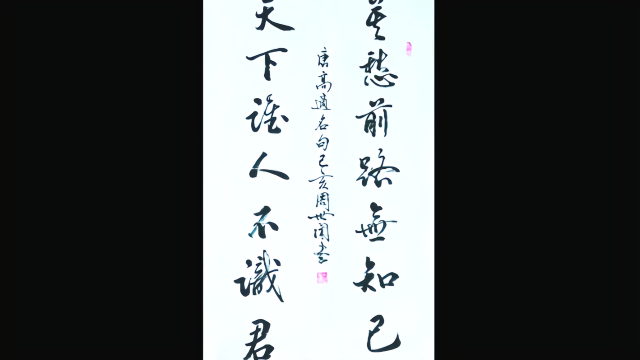 莫愁前路無知己
唐高適名句己亥周世闻書
天下誰人不識君